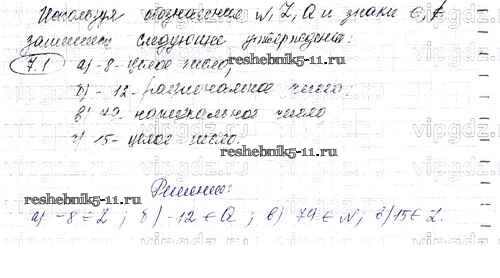 Используя обозначения N, Z, Q и знаки ∈, ∉
запишите следующие утверждения:
7.1 а) -8 - целое число;
б) -12 - рациональное число;
в) 79 - натуральное число
г) 15 - целое число.
reshebnik5-11.ru
vipgdz.com
reshebnik5-11.ru
reshebnik5-11.ru
Решение:
а) -8 ∈ Z ; б) -12 ∈ Q ; в) 79 ∈ N; г) 15 ∈ Z.